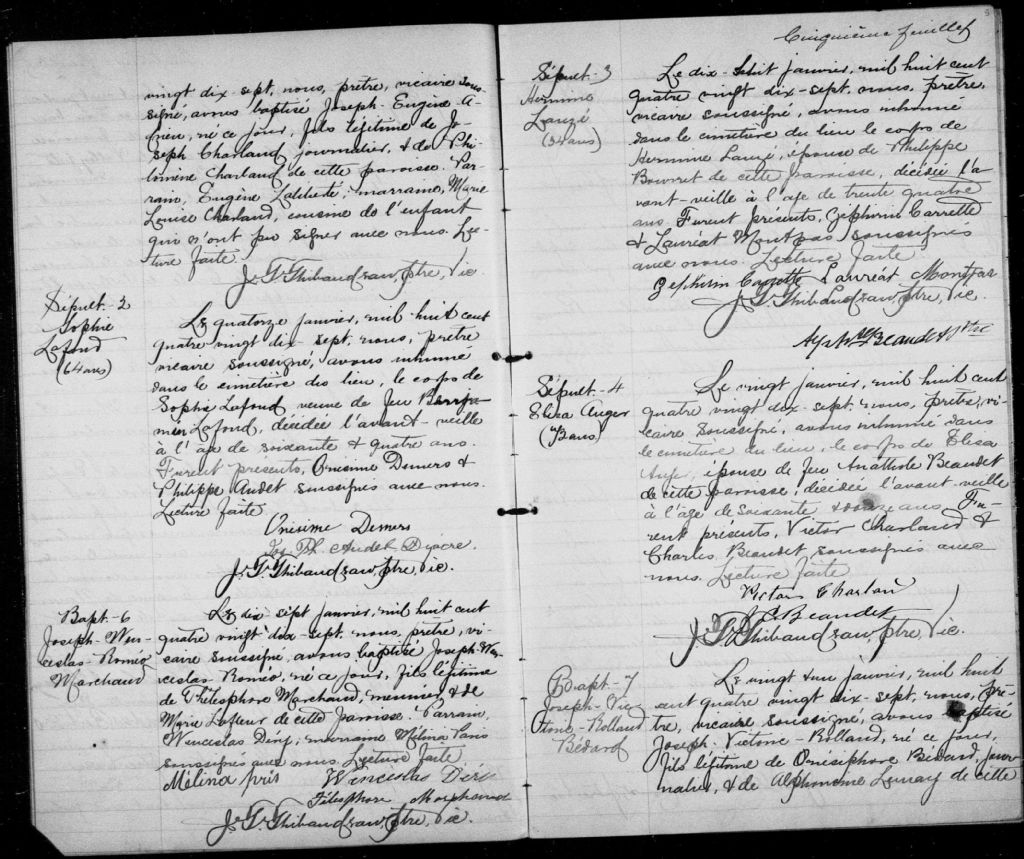 vingt dix-sept, nous, prêtre, vicaire sous-
signé, avons baptisé Joseph-Eugène-A-
né ce jour, fils légitime de Jo-
seph Charland journalier, & de Phi-
lomène Charland de cette paroisse. Par-
rain, Eugène Laliberté; marraine, Marie
Louise Charland, cousine de l'enfant
qui n'ont pu signer avec nous. Lec-
ture faite.
J. Thibaudeau, ptre, Vic.
Sépult-2
Sophie
Lafond
(64 ans)
Le quatorze janvier, mil huit cent
quatre vingt dix-sept, nous, prêtre
vicaire soussigné, avons inhumé
dans le cimetière du lieu, le corps de
Sophie Lafond, veuve de feu
Lafond, décédée l'avant-veille
à l'age de soixante & quatre ans.
Furent présents, Onésime Demers &
Philippe Audet soussignés avec nous.
Lecture faite.
Onésime Demers
Jos. Ph. Audet Diacre.
J. Thibaudeau, ptre, Vic.
Bapt-6
Joseph-Wen-
ceslas-Roméo
Marchand
Le dix-sept janvier, mil huit cent
quatre vingt dix-sept, nous, prêtre, vi-
caire soussigné, avons baptisé Joseph-Wen-
ceslas Roméo, né ce jour, fils légitime
de Thélesphore Marchand, meunier, & de
Marie Lafleur de cette paroisse. Parrain,
Wenceslas Déry; marraine Mélina Paris
soussignés avec nous. Lecture faite
Mélina pris Wenceslas Déri
Télesphore Marchand
J. Thibaudeau, ptre, Vic.
5
Cinquième feuillet
Sépult-3
Hermine
Lauzé
(34 ans)
Le dix-huit janvier, mil huit cent
quatre vingt dix-sept, nous, prêtre,
vicaire soussigné, avons inhumé
dans le cimetière du lieu le corps de
Hermine Lauzé, épouse de Philippe
Bourret de cette paroisse, décédée l'a-
vant-veille à l'age de trente quatre
ans. Furent présents, Zéphirin Carrette
& Lauréat Montpas soussignés
avec nous. Lecture faite
Zephirin Carrette Lauréat Montpas
J. Thibaudeau, ptre, Vic.
Beaudet Ptre
Sépult-4
Elisa Auger
Le vingt janvier, mil huit cent
quatre vingt dix-sept, nous, prêtre, vi-
caire soussigné, avons inhumé dans
le cimetière du lieu, le corps de Elisa
Auger, épouse de feu Anathole Beaudet
de cette paroisse, décédée l'avant-veille
à l'age de soixante & ans. Fu-
rent présents, Victor Charland &
Charles Beaudet soussignés avec
nous. Lecture faite
Victor Charland
C Beaudet
J. Thibaudeau, ptre, Vic.
Bapt-7
Joseph-Vic-
torie-Rolland
Bédard
Le vingt & un janvier, mil huit
cent quatre vingt dix-sept, nous, prê-
tre, vicaire soussigné, avons baptisé
Joseph-Victorie-Rolland, né ce jour,
fils légitime de Onésiphore Bédard, jour-
nalier, & de Alphonsine Lemay de cette